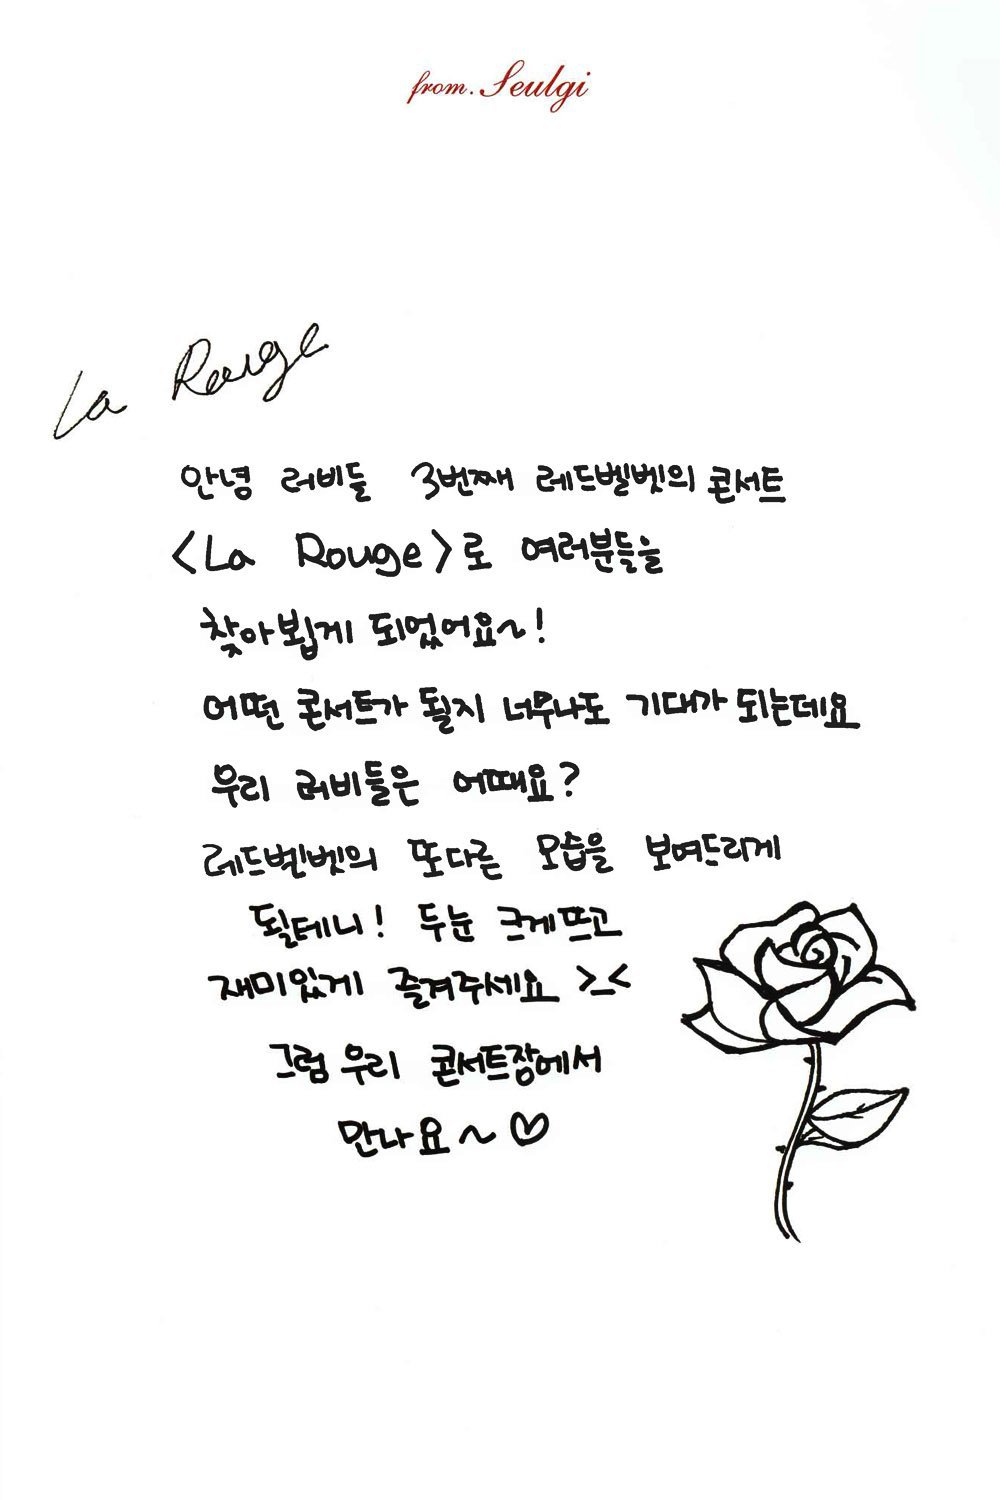 from. Seulgi
La Rouge
안녕 러비들 3번째 레드벨벳의 콘서트
<La Rouge>로 여러분들을
찾아뵙게 되었어요~!
어떤 콘서트가 될지 너무나도 기대가 되는데요
우리 러비들은 어때요?
레드벨벳의 또다른 모습을 보여드리게
될테니! 두눈 크게뜨고
재미있게 즐겨주세요 >_<
그럼 우리 콘서트장에서
만나요~♡